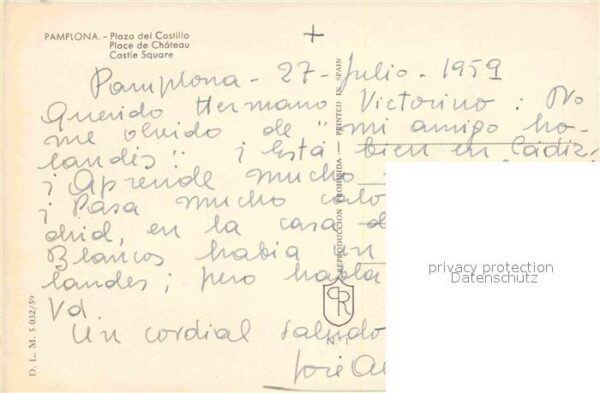 PAMPLONA. – Plaza del Castillo
Place de Château
Castle Square
+
Pamplona - 27 - Julio - 1959
Querido Hermano Victorino: No
me olvido de "mi amigo ho-
landés". ¡Está bien en Cádiz
¡Aprende mucho
¡Pasa mucho calo
drid, en la casa d
Blancos había un
landes; pero habla
Vd.
Un cordial saludo
José
REPRODUCCION PROHIBIDA — PRINTED IN SPAIN
N.º 1
D. L. M. 5 032/59
privacy protection
Datenschutz